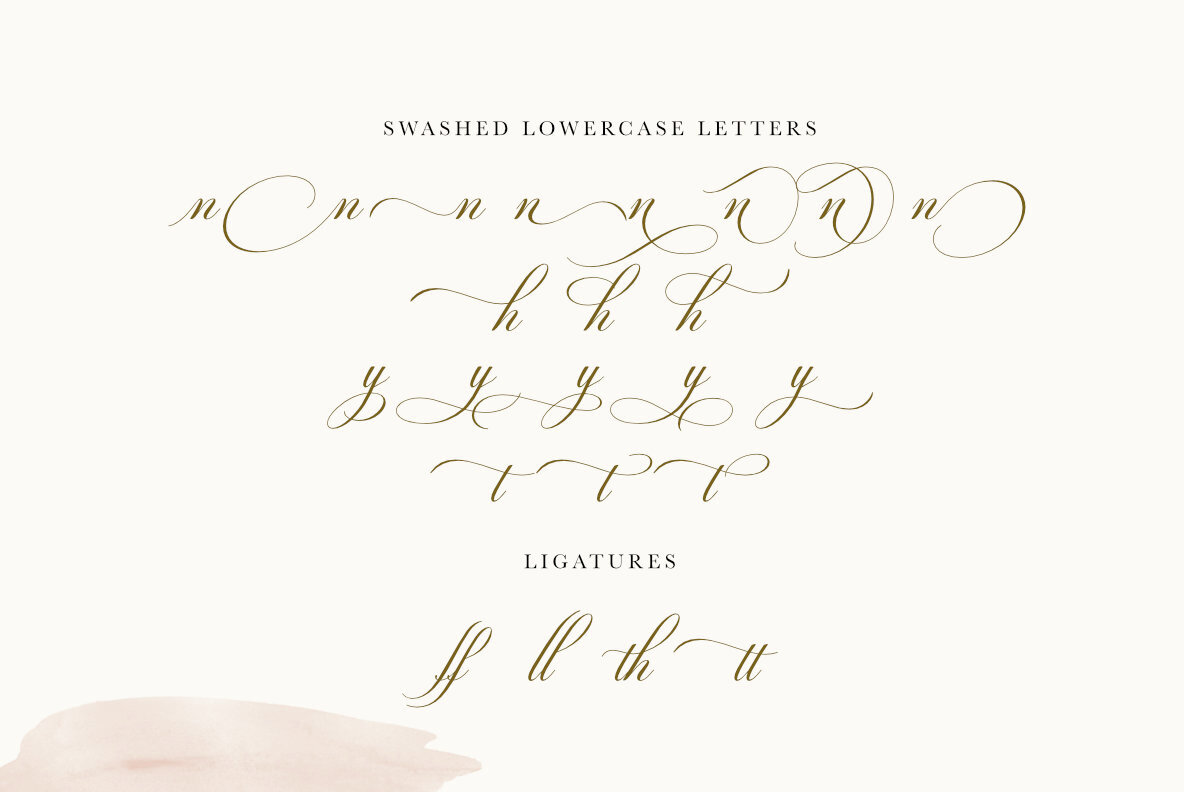 SWASHED LOWERCASE LETTERS
n n n n n n n n
h h h
y y y y y
t t t
LIGATURES
ff ll th tt